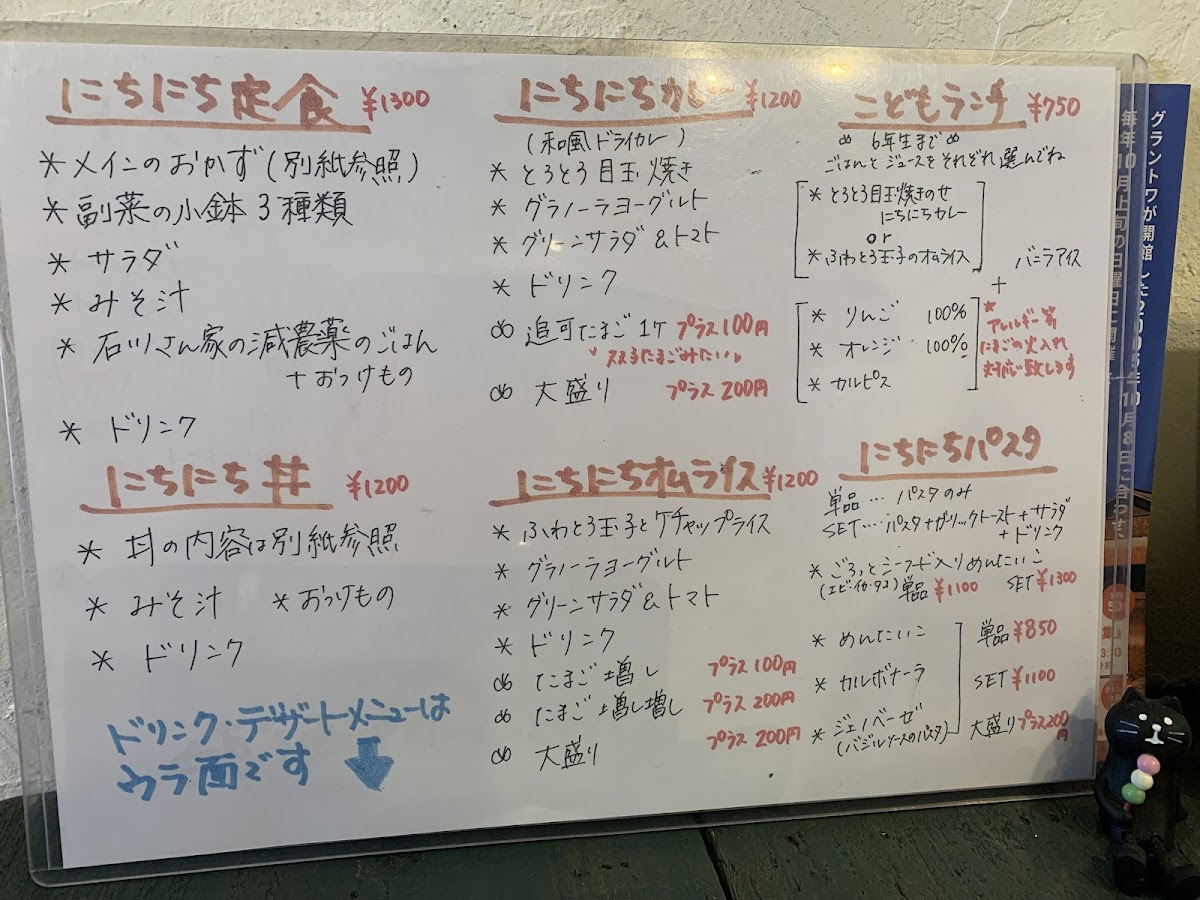 にちにち定食 ¥1300
* メインのおかず(別紙参照)
* 副菜の小鉢3種類
* サラダ
* みそ汁
* 石川さん家の減農薬のごはん
+おつけもの
* ドリンク
にちにち丼 ¥1200
* 丼の内容は別紙参照
* みそ汁 * おつけもの
* ドリンク
ドリンク・デザートメニューは
ウラ面です
にちにちカレー ¥1200
(和風ドライカレー)
* とろとろ目玉焼き
* グラノーラヨーグルト
* グリーンサラダ&トマト
* ドリンク
追可たまご1ケ プラス100円
双子たまごみたい
大盛り プラス200円
にちにちオムライス ¥1200
* ふわとろ玉子とケチャップライス
* グラノーラヨーグルト
* グリーンサラダ&トマト
* ドリンク
たまご増し プラス100円
たまご増し増し プラス200円
大盛り プラス200円
こどもランチ ¥750
6年生まで
ごはんとジュースをそれぞれ選んでね
* とろとろ目玉焼きのせ
にちにちカレー
or
* ふわとろ玉子のオムライス
バニラアイス
+
* りんご 100%
* オレンジ 100%
* カルピス
* アレルギー等
たまごの火入れ
対応致します
にちにちパスタ
単品…パスタのみ
SET…パスタ+ガーリックトースト+サラダ
+ドリンク
* ごろっとシーフード入りめんたいこ
(エビ・イカ・タコ) 単品 ¥1100 SET ¥1300
* めんたいこ
* カルボナーラ
* ジェノベーゼ
(バジルソースのパスタ)
単品 ¥850
SET ¥1100
大盛りプラス200円
グラントワが開館した2005年10月8日に合わせ、
毎年10月上旬の日曜日に開催